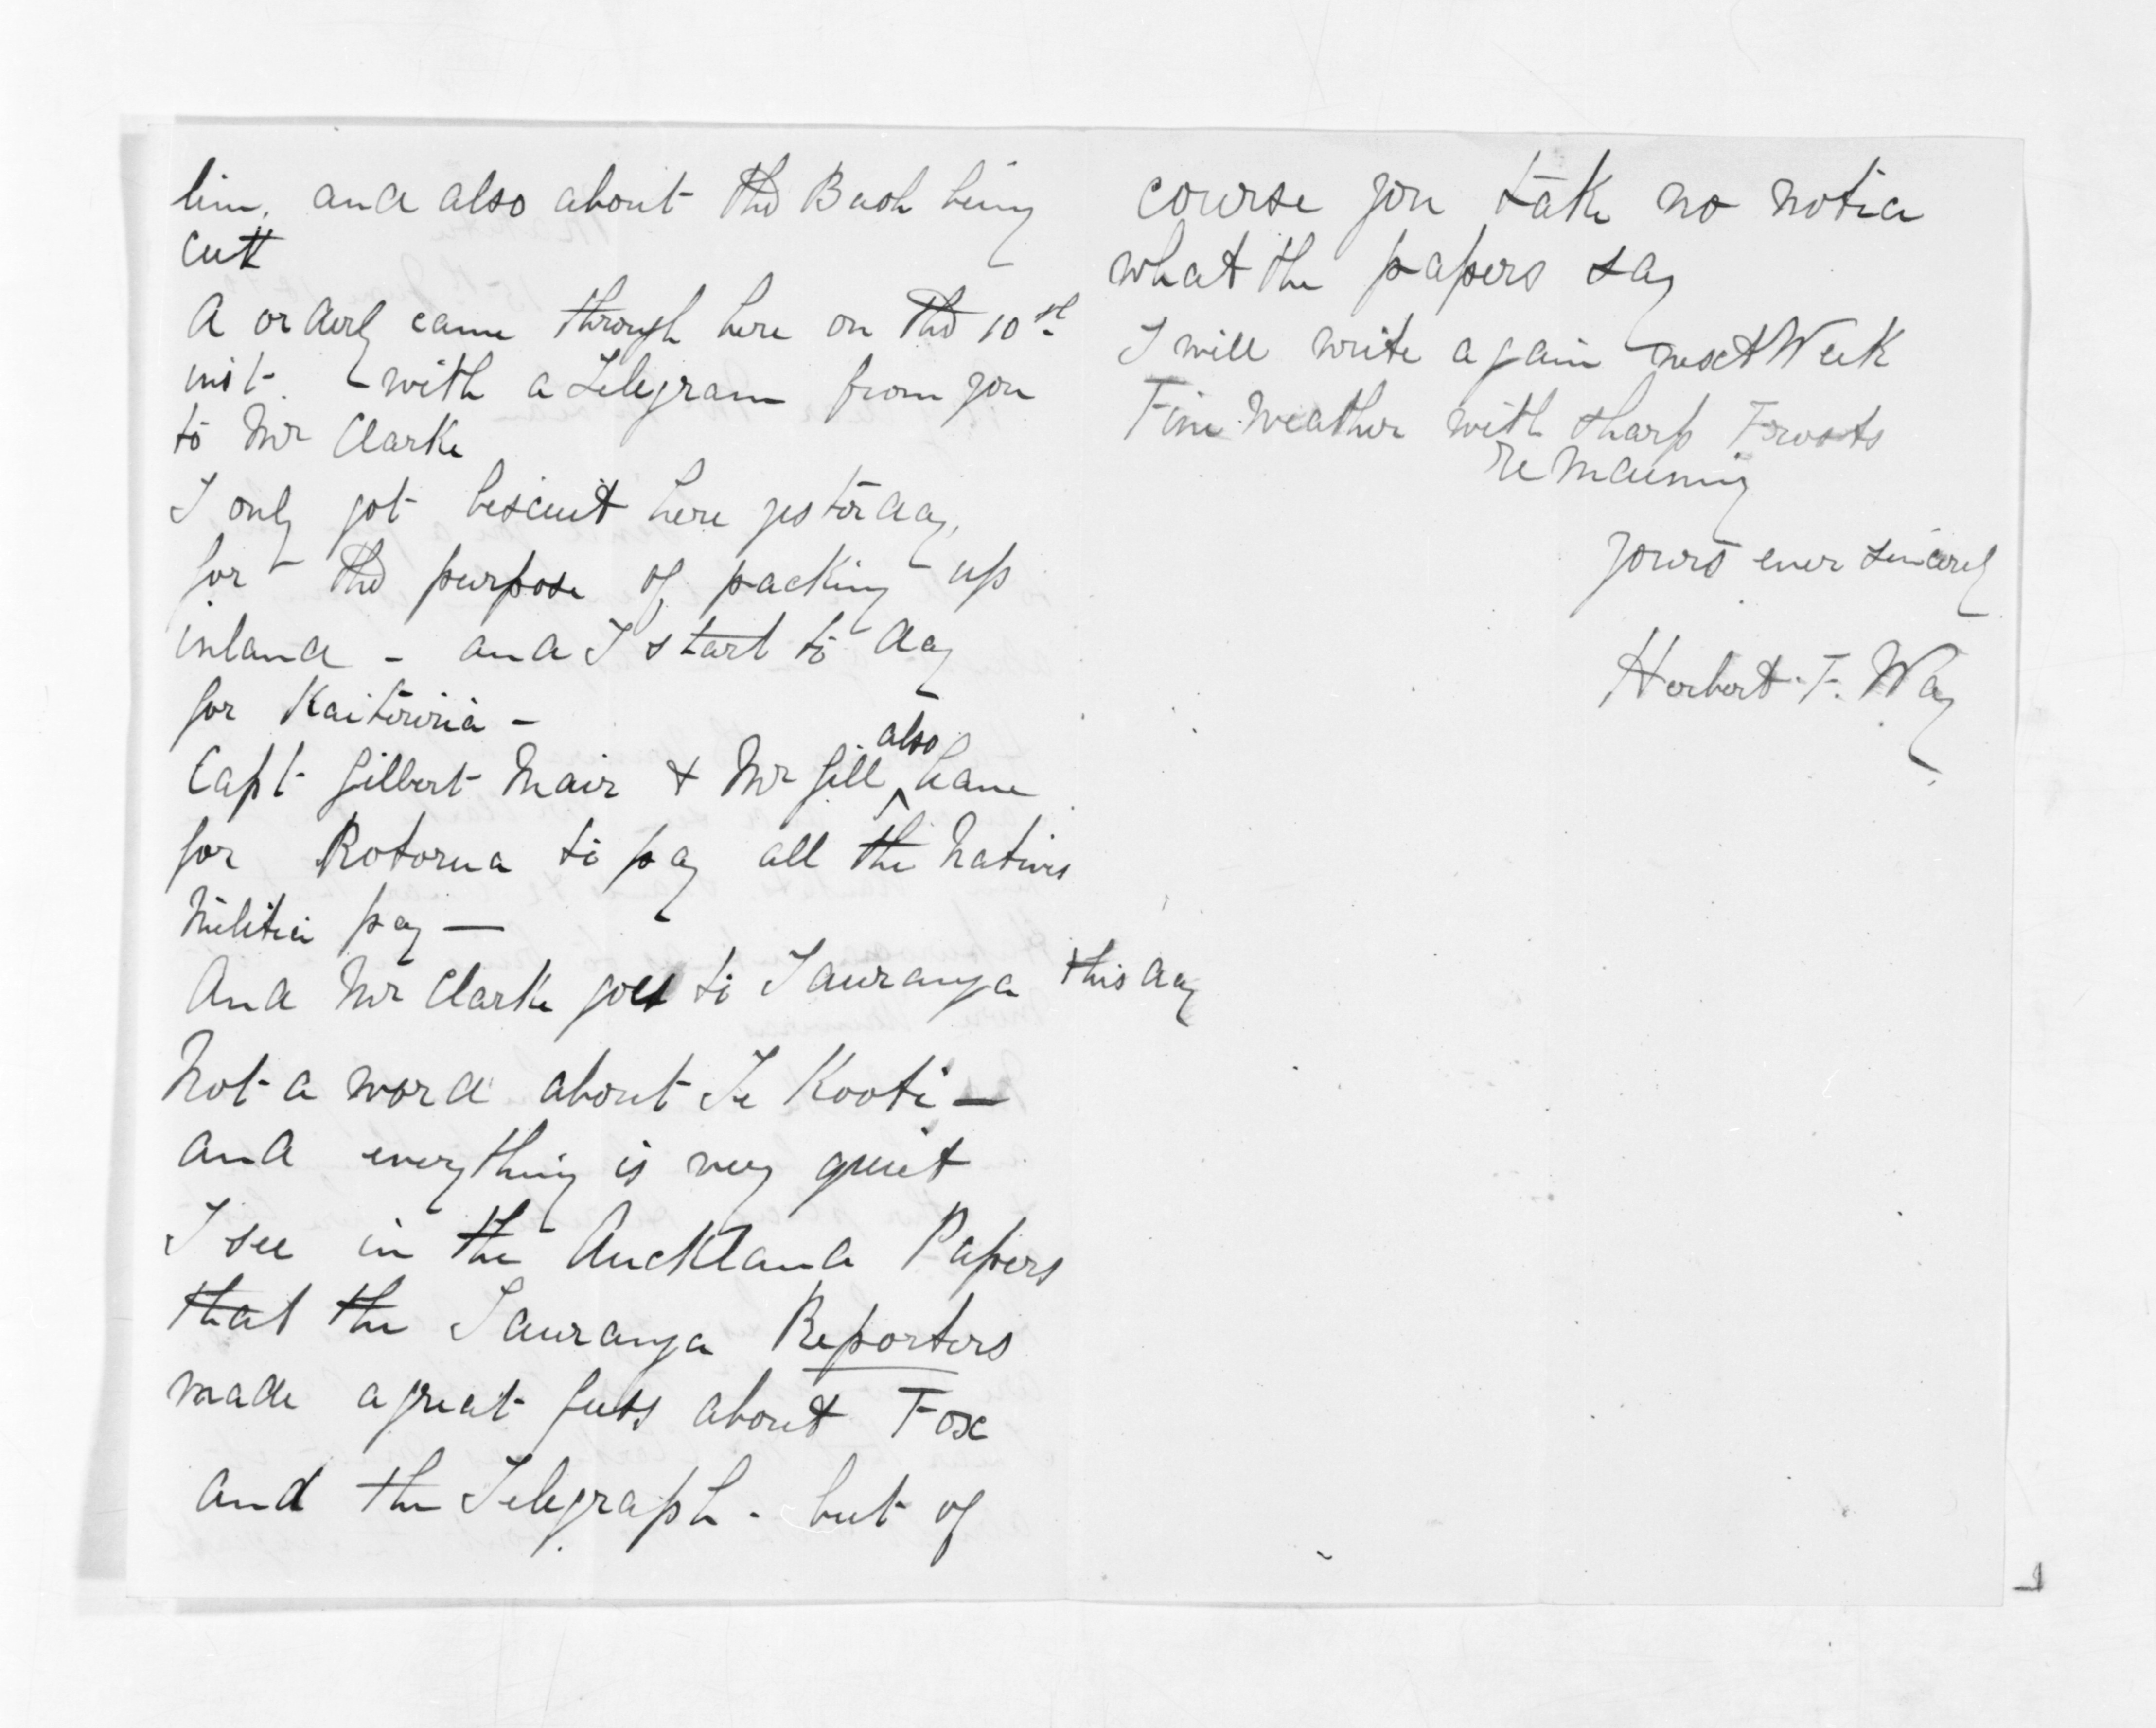 him. and also about the Bush being
cutt
A orderly came through here on the 10th
inst. with a Telegram from you
to Mr Clarke
I only got biscuit here yesterday,
for the purpose of packing up
inland - and I start to day
for Kaiteriria -
Capt Gilbert Mair & Mr Gill also leave
for Rotorua to pay all the Natives
Militia pay —
And Mr Clarke goes to Tauranga this day
Not a word about Te Kooti —
and everything is very quiet
I see in the Auckland Papers
that the Tauranga Reporters
made a great fuss about Fox
and the Telegraph - but of
course you take no notice
what the papers say
I will write again next Week
Fine Weather with sharp Frosts
remaining
yours ever sincerely
Herbert. F. Way